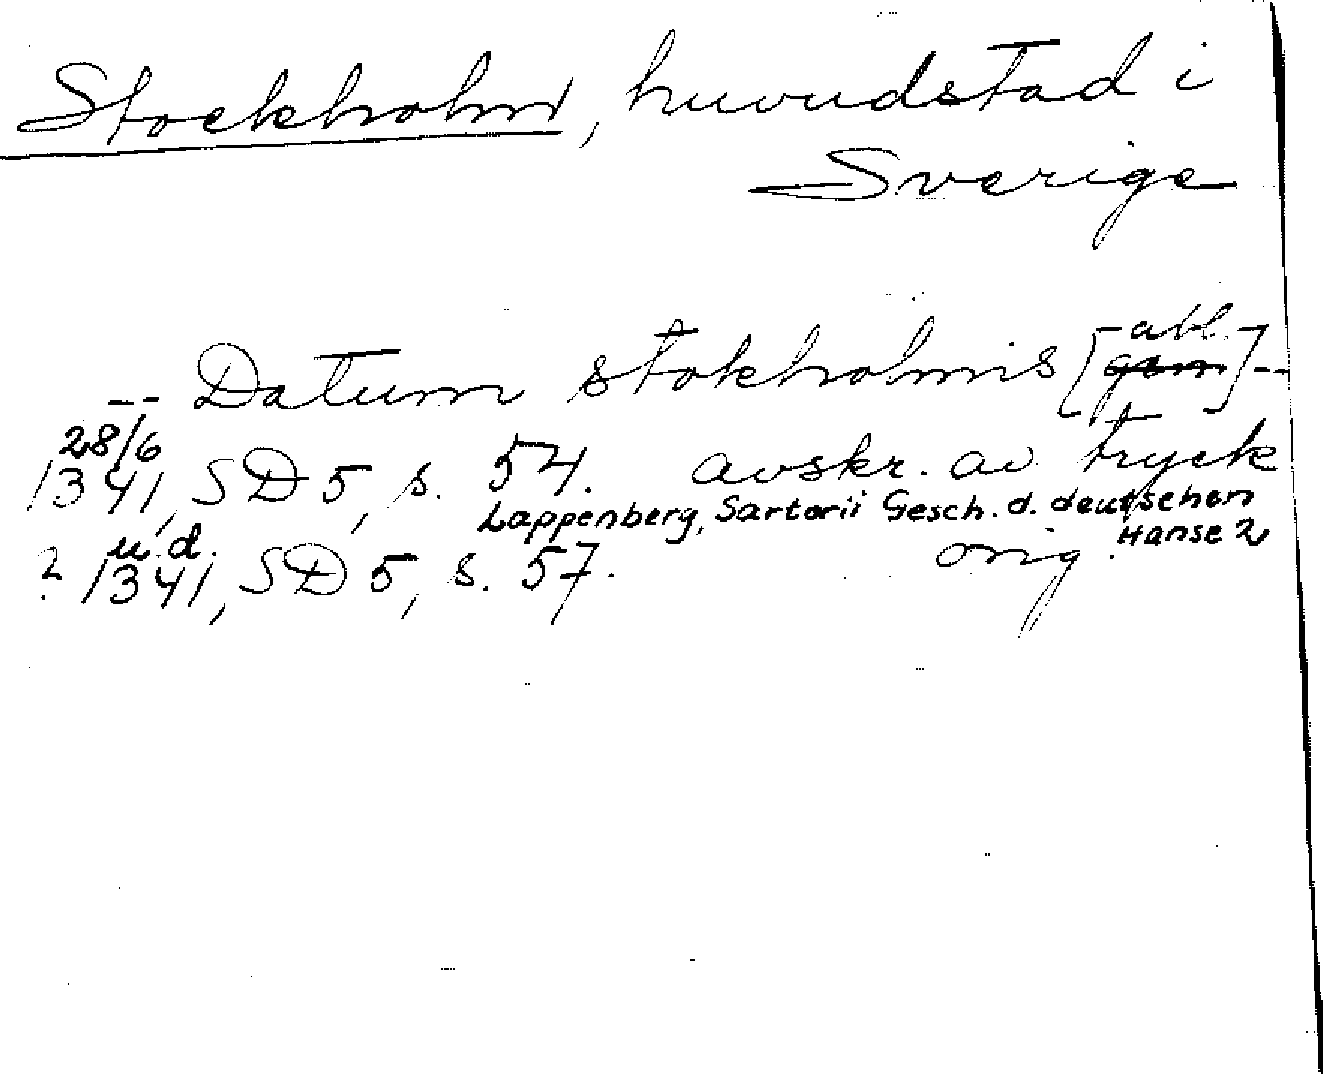 Stockholm, huvudstad i
Sverige
-- Datum stokholmis [abl. gem]--
28/6
1341, SD 5, s. 54. avskr. av tryck
Lappenberg, Sartorii Gesch. d. deutschen
Hanse 2
u.d.
? 1341, SD 5, s. 57. orig.